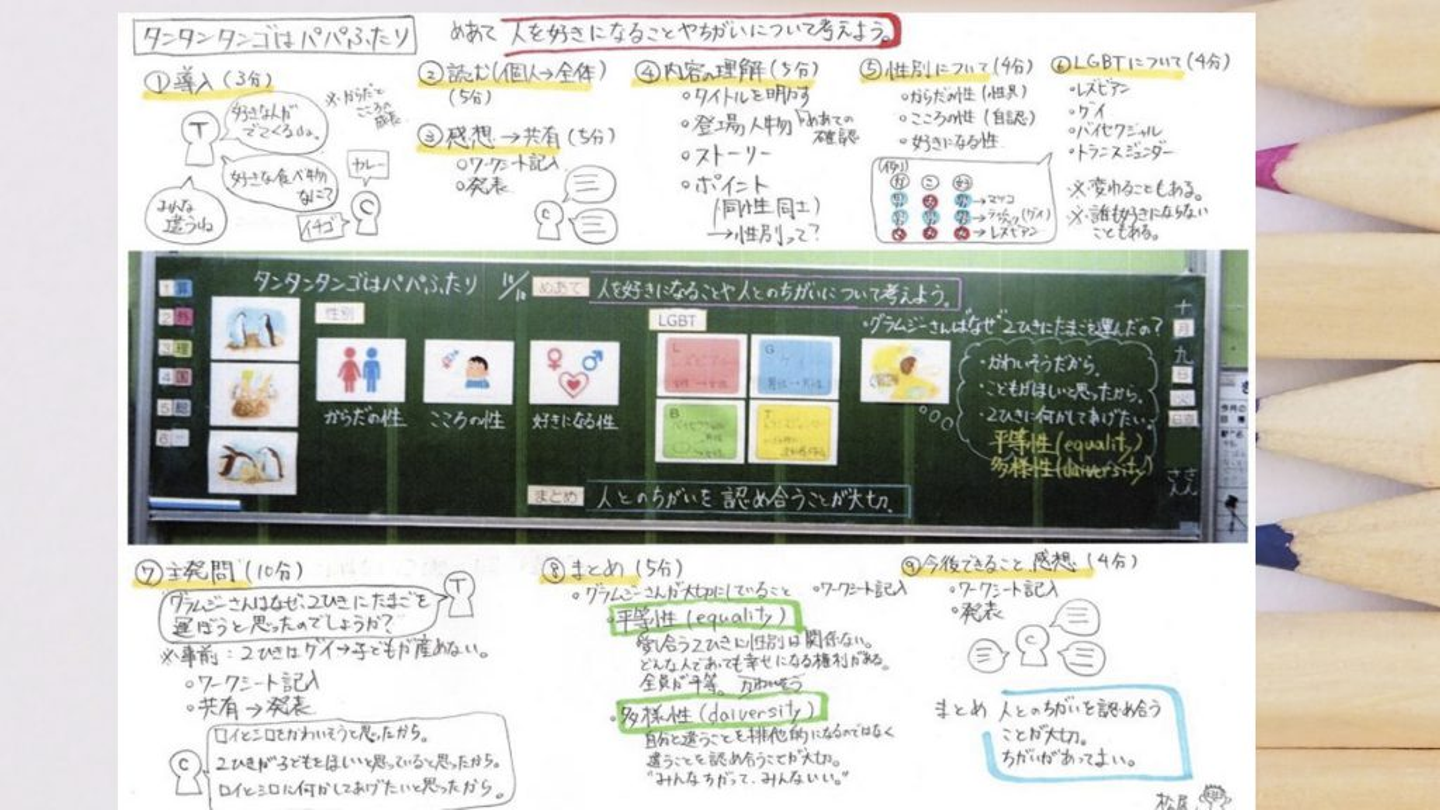 タンタンタンゴはパパふたり
めあて 人を好きになることやちがいについて考えよう。
①導入(3分)
T
好きな人が
でてくるね。
※からだと
こころの
成長
好きな食べ物
なに?
カレー
みんな
違うね
イチゴ
C
②読む(個人→全体)
(5分)
③感想→共有(5分)
○ワークシート記入
○発表
C
④内容の理解(5分)
○タイトルを明かす
○登場人物
めあての
確認
○ストーリー
○ポイント
(同性同士)
→性別って?
⑤性別について(4分)
○からだの性(性界)
○こころの性(自認)
○好きになる性
(例)
か こ 好
→マツコ
(ゲイ)
→レズビアン
⑥LGBTについて(4分)
○レズビアン
○ゲイ
○バイセクシャル
○トランスジェンダー
※変わることもある。
※誰も好きにならない
こともある。
タンタンタンゴはパパふたり
めあて
人を好きになることや人とのちがいについて考えよう。
1 算
2
3 理
4 国
5 総
6
性別
からだの性
こころの性
好きになる性
LGBT
L
レズビアン
G
ゲイ
B
バイセクシャル
T
・グラムジーさんはなぜ2ひきにたまごを選んだの?
・かわいそうだから。
・こどもがほしいと思ったから。
・2ひきに何かしてあげたい。
平等性(equality)
多様性(daiversity)
十
月
九
日
火
日直
まとめ
人とのちがいを認め合うことが大切。
⑦主発問(10分)
T
グラムジーさんはなぜ、2ひきにたまごを
運ぼうと思ったのでしょうか?
※事前:2ひきはゲイ→子どもが産めない。
○ワークシート記入
○共有→発表
C
ロイとシロをかわいそうと思ったから。
2ひきが子どもをほしいと思っていると思ったから。
ロイとシロに何かしてあげたいと思ったから。
⑧まとめ(5分)
○グラムジーさんが大切にしていること
○ワークシート記入
・平等性(equality)
愛し合う2ひきに性別は関係ない。
どんな人であっても幸せになる権利がある。
全員が平等。 かわいそう
・多様性(daiversity)
自分と違うことを排他的になるのではなく
違うことを認め合うことが大切。
"みんなちがって、みんないい。"
⑨今後できること 感想(4分)
○ワークシート記入
○発表
C
まとめ 人とのちがいを認め合う
ことが大切。
ちがいがあってよい。
松尾